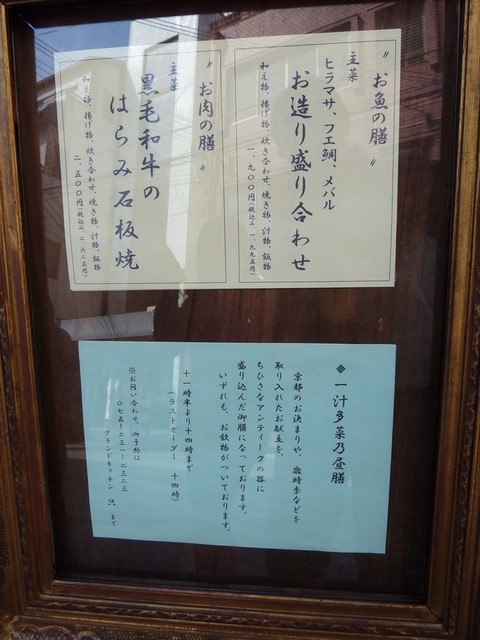 〃お魚の膳〃
主菜
ヒラマサ、フエ鯛、メバル
お造り盛り合わせ
和え物、揚げ物、炊き合わせ、焼き物、汁物、飯物
一、九００円(税込み 一、九九五円)
〃お肉の膳〃
主菜
黒毛和牛の
はらみ石板焼
和え物、揚げ物、炊き合わせ、焼き物、汁物、飯物
二、五００円(税込み 二、六二五円)
◆一汁多菜乃昼膳
京都のお決まりや、歳時季などを
取り入れたお献立を、
ちひさなアンティークの器に
盛り込んだ御膳になっております。
いずれも、お飲物がついております。
十一時半より十四時まで
(ラストオーダー 十四時)
※お問い合わせ、御予約は
０七五-二三一-二三二三
グランドキッチン
まで